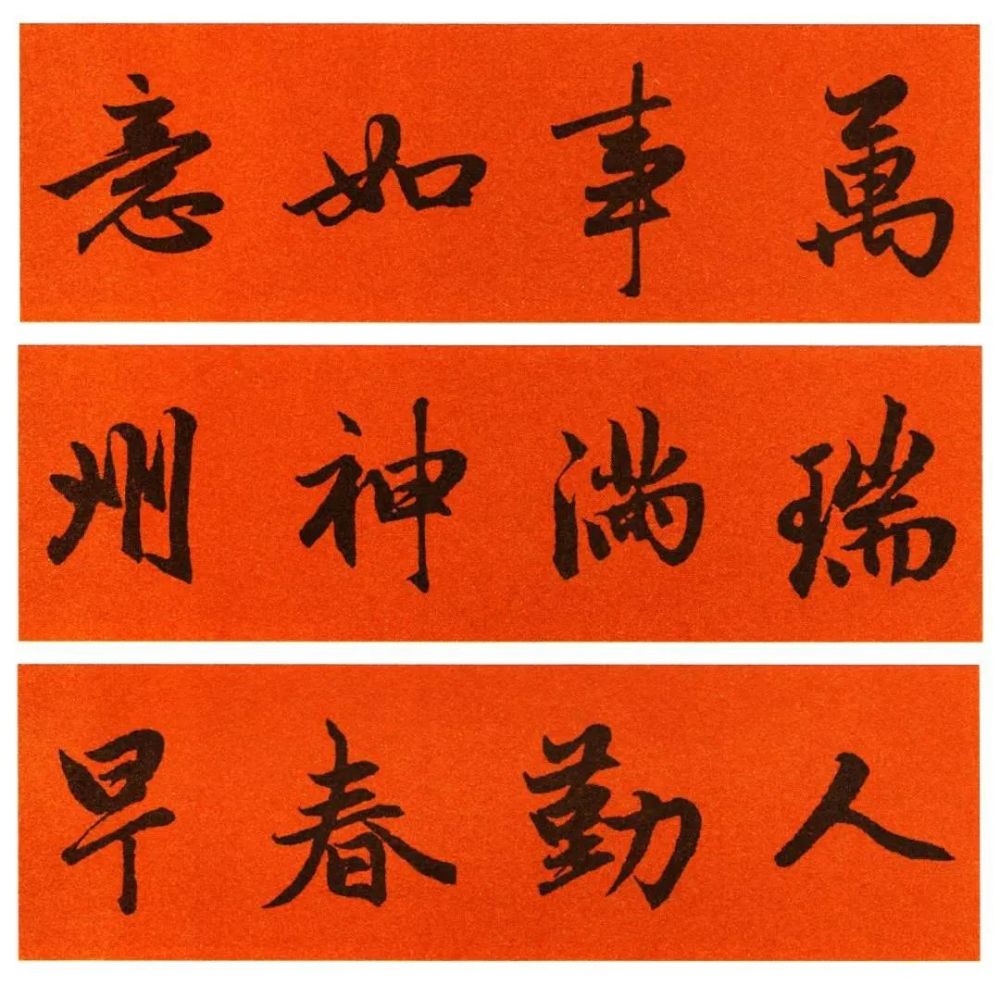 萬事如意
瑞滿神州
人勤春早